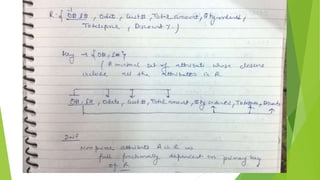 R = { O#, I#, Odate, Cust#, Total_amount, Qty_ordered,
Totalprice, Discount % }
key → { O#, I# }
( A minimal set of attributes whose closure
include all the attributes in R
O#, I#, Odate, Cust#, Total amount, Qty ordered, Totalprice, Discount
2NF
Non prime attributes A in R is
full functionally dependent on primary key
of R